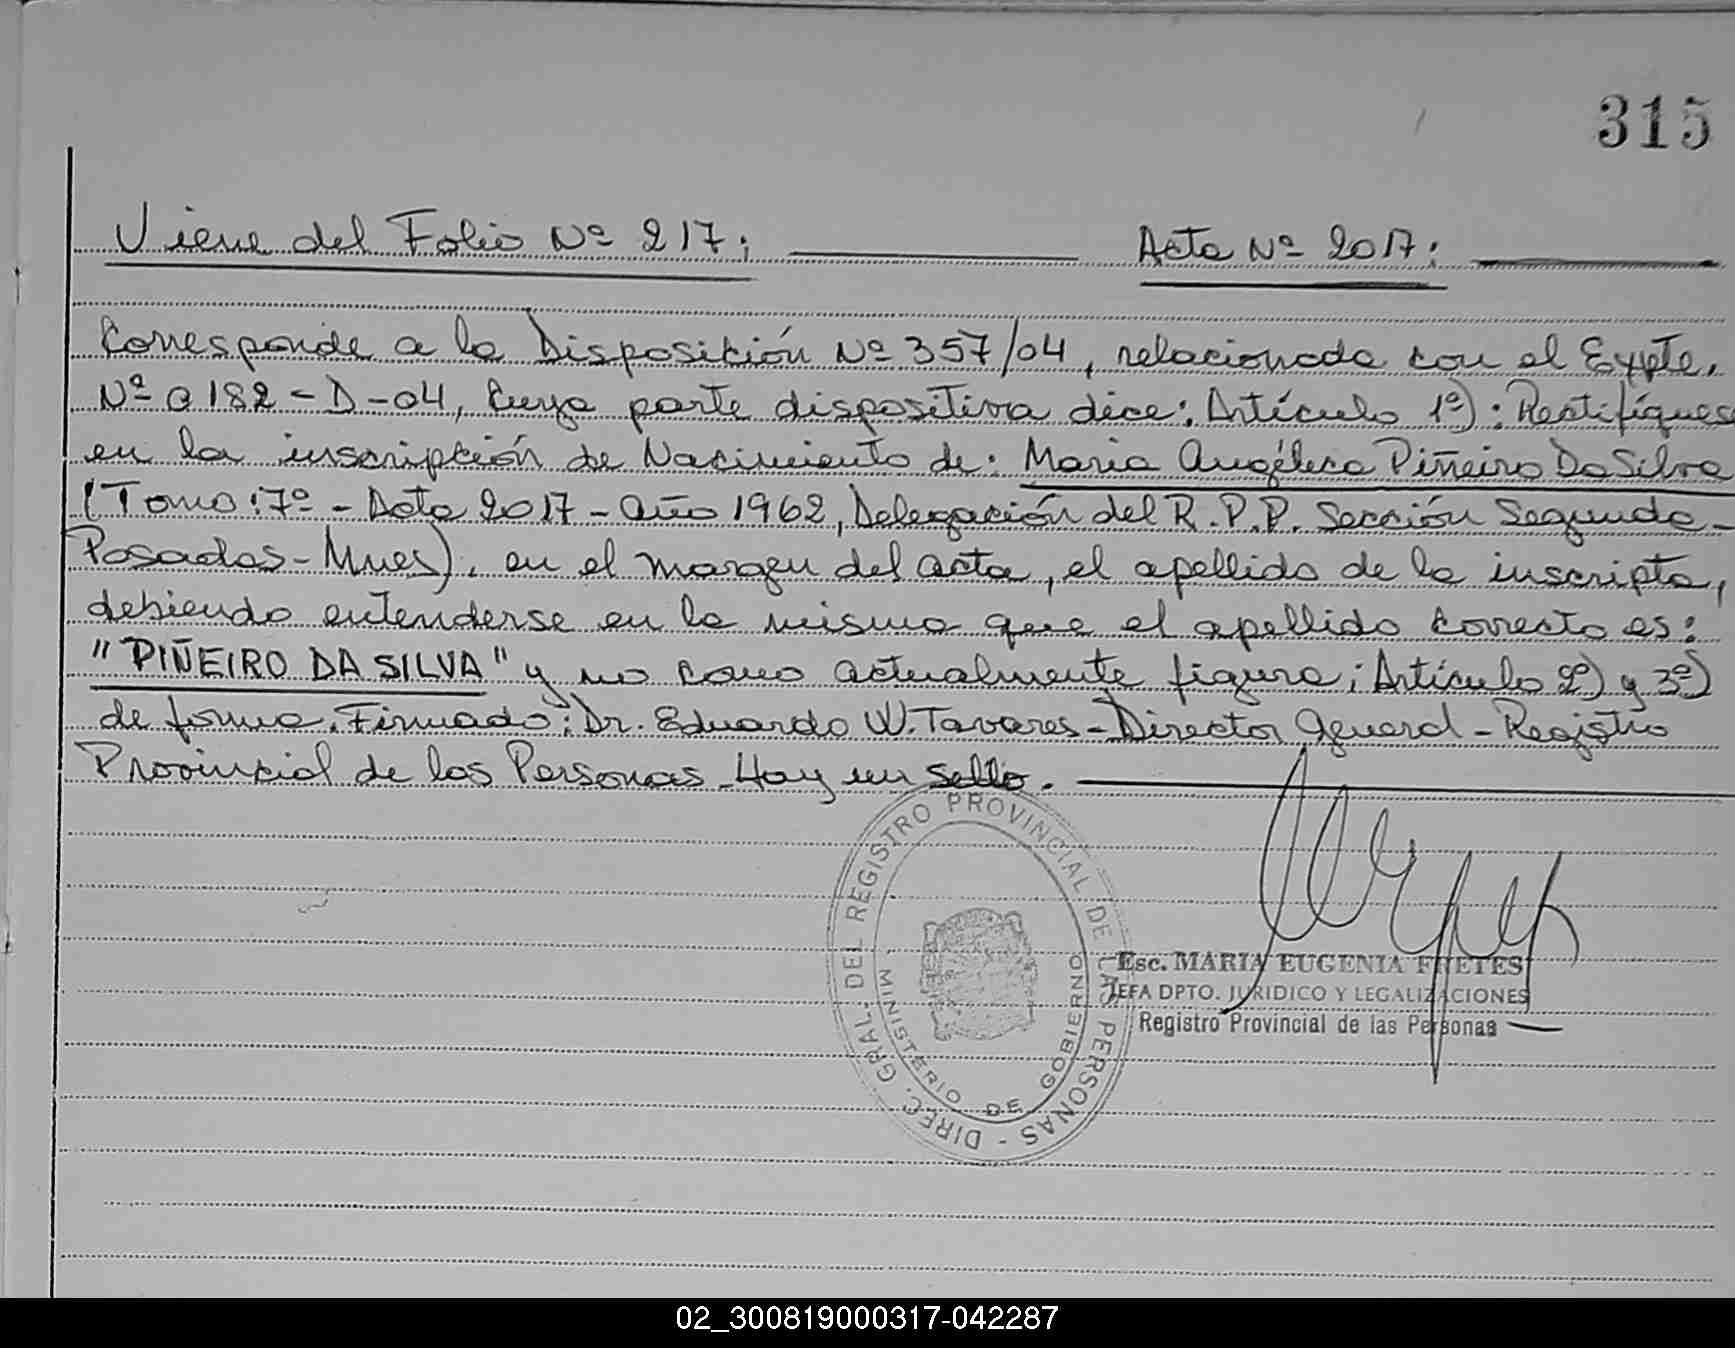 315
Viene del Folio Nº 217; Acta Nº 2017;
Corresponde a la Disposición Nº 357/04, relacionada con el Expte.
Nº 0182-D-04, Cuya parte dispositiva dice: Artículo 1º): Rectifíquese
en la inscripción de Nacimiento de: Maria Angélica Piñeiro Da Silva
(Tomo: 7º - Acta 2017 - Año 1962, Delegación del R.P.P. Sección Segunda-
Posadas-Mnes), en el margen del acta, el apellido de la inscripta,
debiendo entenderse en la misma que el apellido correcto es:
"PIÑEIRO DA SILVA" y no como actualmente figura; Artículo 2º) y 3º)
de forma. Firmado: Dr. Eduardo W. Tavares - Director General - Registro
Provincial de las Personas. Hay un sello.
DIREC. GRAL. DEL REGISTRO PROVINCIAL DE LAS PERSONAS -
MINISTERIO DE GOBIERNO
Esc. MARIA EUGENIA FRETES
JEFA DPTO. JURIDICO Y LEGALIZACIONES
Registro Provincial de las Personas
02_300819000317-042287